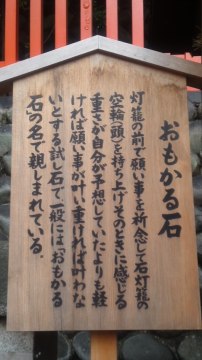 おもかる石
灯籠の前で願い事を祈念して石灯籠の
空輪(頭)を持ち上げそのときに感じる
重さが自分が予想していたよりも軽
ければ願い事が叶い重ければ叶わな
いとする試し石で一般には「おもかる
石」の名で親しまれている。